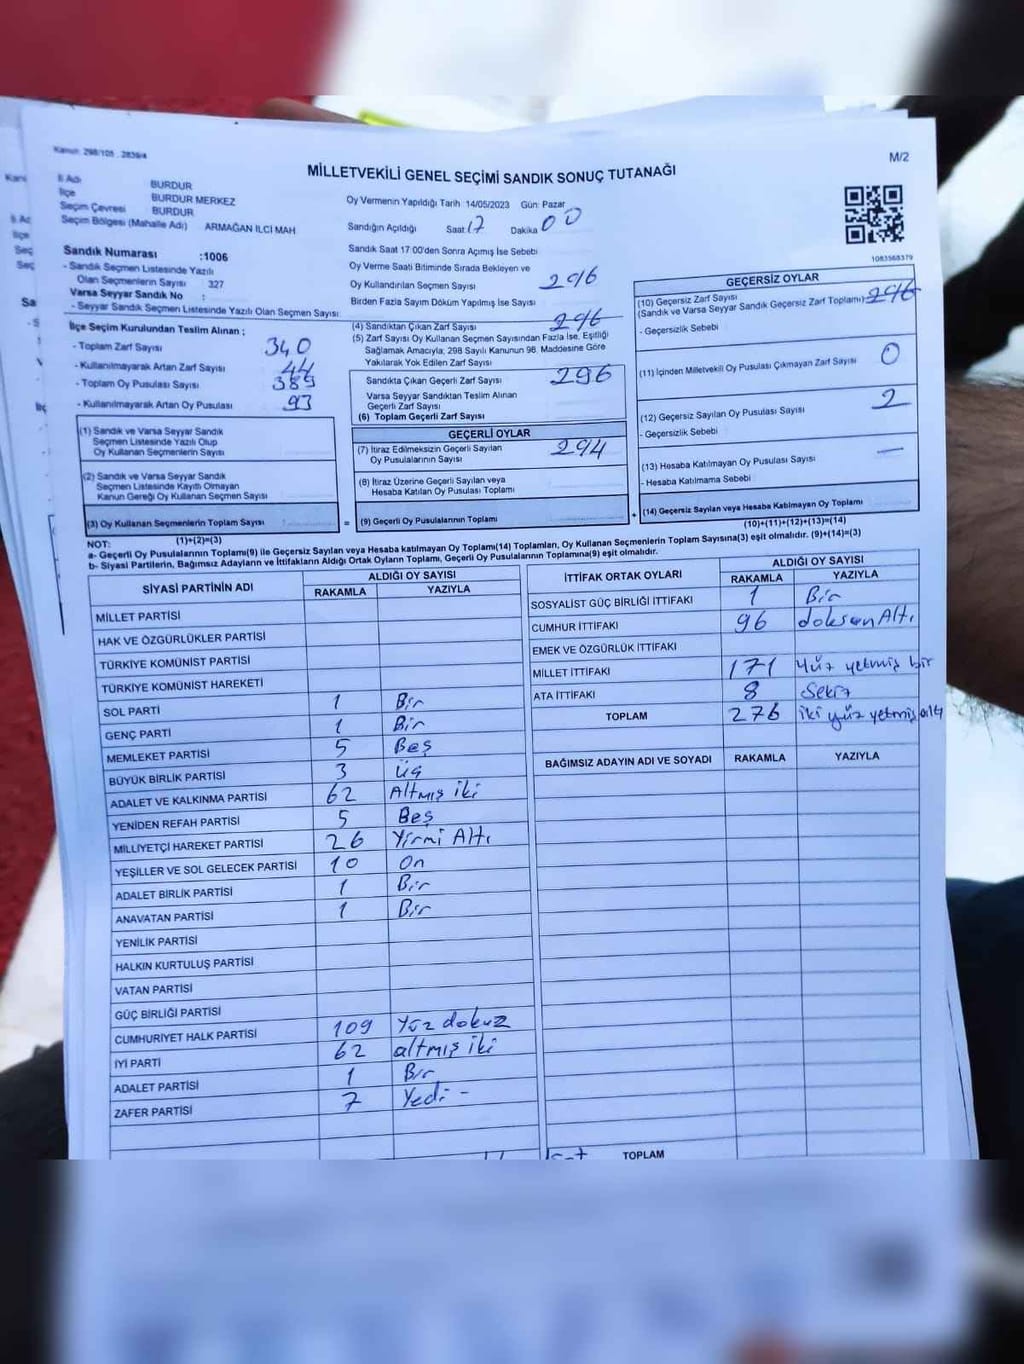 Kanun: 298/105 , 2839/4
M/2
MİLLETVEKİLİ GENEL SEÇİMİ SANDIK SONUÇ TUTANAĞI
İl Adı BURDUR
İlçe BURDUR MERKEZ
Seçim Çevresi BURDUR
Seçim Bölgesi (Mahalle Adı) ARMAĞAN ILCI MAH
Sandık Numarası :1006
- Sandık Seçmen Listesinde Yazılı
Olan Seçmenlerin Sayısı 327
Varsa Seyyar Sandık No :
- Seyyar Sandık Seçmen Listesinde Yazılı Olan Seçmen Sayısı:
Oy Vermenin Yapıldığı Tarih 14/05/2023 Gün: Pazar
Sandığın Açıldığı Saat 17 Dakika 00
Sandık Saat 17:00'den Sonra Açımış İse Sebebi
Oy Verme Saati Bitiminde Sırada Bekleyen ve
Oy Kullandırılan Seçmen Sayısı 296
Birden Fazla Sayım Döküm Yapılmış İse Sayısı
1083568379
İlçe Seçim Kurulundan Teslim Alınan ;
- Toplam Zarf Sayısı 340
- Kullanılmayarak Artan Zarf Sayısı 44
- Toplam Oy Pusulası Sayısı 389
- Kullanılmayarak Artan Oy Pusulası 93
(1) Sandık ve Varsa Seyyar Sandık
Seçmen Listesinde Yazılı Olup
Oy Kullanan Seçmenlerin Sayısı
(2) Sandık ve Varsa Seyyar Sandık
Seçmen Listesinde Kayıtlı Olmayan
Kanun Gereği Oy Kullanan Seçmen Sayısı
(3) Oy Kullanan Seçmenlerin Toplam Sayısı
(1)+(2)=(3)
(4) Sandıktan Çıkan Zarf Sayısı 296
(5) Zarf Sayısı Oy Kullanan Seçmen Sayısından Fazla İse, Eşitliği
Sağlamak Amacıyla; 298 Sayılı Kanunun 98. Maddesine Göre
Yakılarak Yok Edilen Zarf Sayısı
Sandıkta Çıkan Geçerli Zarf Sayısı 296
Varsa Seyyar Sandıktan Teslim Alınan
Geçerli Zarf Sayısı
(6) Toplam Geçerli Zarf Sayısı
GEÇERLİ OYLAR
(7) İtiraz Edilmeksizin Geçerli Sayılan
Oy Pusulalarının Sayısı 294
(8) İtiraz Üzerine Geçerli Sayılan veya
Hesaba Katılan Oy Pusulası Toplamı
= (9) Geçerli Oy Pusulalarının Toplamı
GEÇERSİZ OYLAR
(10) Geçersiz Zarf Sayısı
(Sandık ve Varsa Seyyar Sandık Geçersiz Zarf Toplamı) 296
- Geçersizlik Sebebi
(11) İçinden Milletvekili Oy Pusulası Çıkmayan Zarf Sayısı 0
(12) Geçersiz Sayılan Oy Pusulası Sayısı 2
- Geçersizlik Sebebi
(13) Hesaba Katılmayan Oy Pusulası Sayısı —
- Hesaba Katılmama Sebebi
+ (14) Geçersiz Sayılan veya Hesaba Katılmayan Oy Toplamı
(10)+(11)+(12)+(13)=(14)
NOT:
a- Geçerli Oy Pusulalarının Toplamı(9) ile Geçersiz Sayılan veya Hesaba katılmayan Oy Toplamı(14) Toplamları, Oy Kullanan Seçmenlerin Toplam Sayısına(3) eşit olmalıdır. (9)+(14)=(3)
b- Siyasi Partilerin, Bağımsız Adayların ve İttifakların Aldığı Ortak Oyların Toplamı, Geçerli Oy Pusulalarının Toplamına(9) eşit olmalıdır.
SİYASİ PARTİNİN ADI ALDIĞI OY SAYISI
RAKAMLA YAZIYLA
MİLLET PARTİSİ
HAK VE ÖZGÜRLÜKLER PARTİSİ
TÜRKİYE KOMÜNİST PARTİSİ
TÜRKİYE KOMÜNİST HAREKETİ
SOL PARTİ 1 Bir
GENÇ PARTİ 1 Bir
MEMLEKET PARTİSİ 5 Beş
BÜYÜK BİRLİK PARTİSİ 3 üç
ADALET VE KALKINMA PARTİSİ 62 Altmış iki
YENİDEN REFAH PARTİSİ 5 Beş
MİLLİYETÇİ HAREKET PARTİSİ 26 Yirmi Altı
YEŞİLLER VE SOL GELECEK PARTİSİ 10 On
ADALET BİRLİK PARTİSİ 1 Bir
ANAVATAN PARTİSİ 1 Bir
YENİLİK PARTİSİ
HALKIN KURTULUŞ PARTİSİ
VATAN PARTİSİ
GÜÇ BİRLİĞİ PARTİSİ
CUMHURİYET HALK PARTİSİ 109 Yüz dokuz
İYİ PARTİ 62 altmış iki
ADALET PARTİSİ 1 Bir
ZAFER PARTİSİ 7 Yedi -
İTTİFAK ORTAK OYLARI ALDIĞI OY SAYISI
RAKAMLA YAZIYLA
SOSYALİST GÜÇ BİRLİĞİ İTTİFAKI 1 Bir
CUMHUR İTTİFAKI 96 doksan Altı
EMEK VE ÖZGÜRLÜK İTTİFAKI
MİLLET İTTİFAKI 171 Yüz yetmiş bir
ATA İTTİFAKI 8 Sekiz
TOPLAM 276 iki yüz yetmiş altı
BAĞIMSIZ ADAYIN ADI VE SOYADI RAKAMLA YAZIYLA
TOPLAM